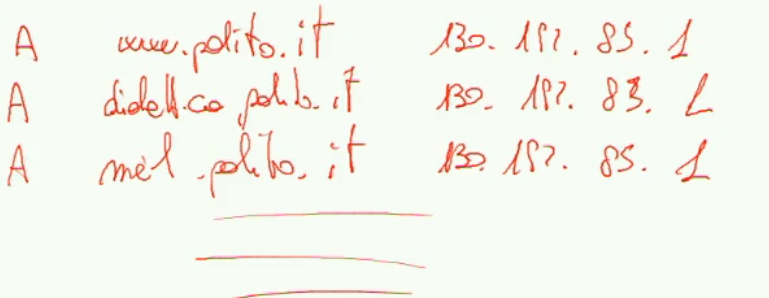 A www.polito.it 130.192.85.1
A didattica.polito.it 130.192.83.2
A mail.polito.it 130.192.85.1